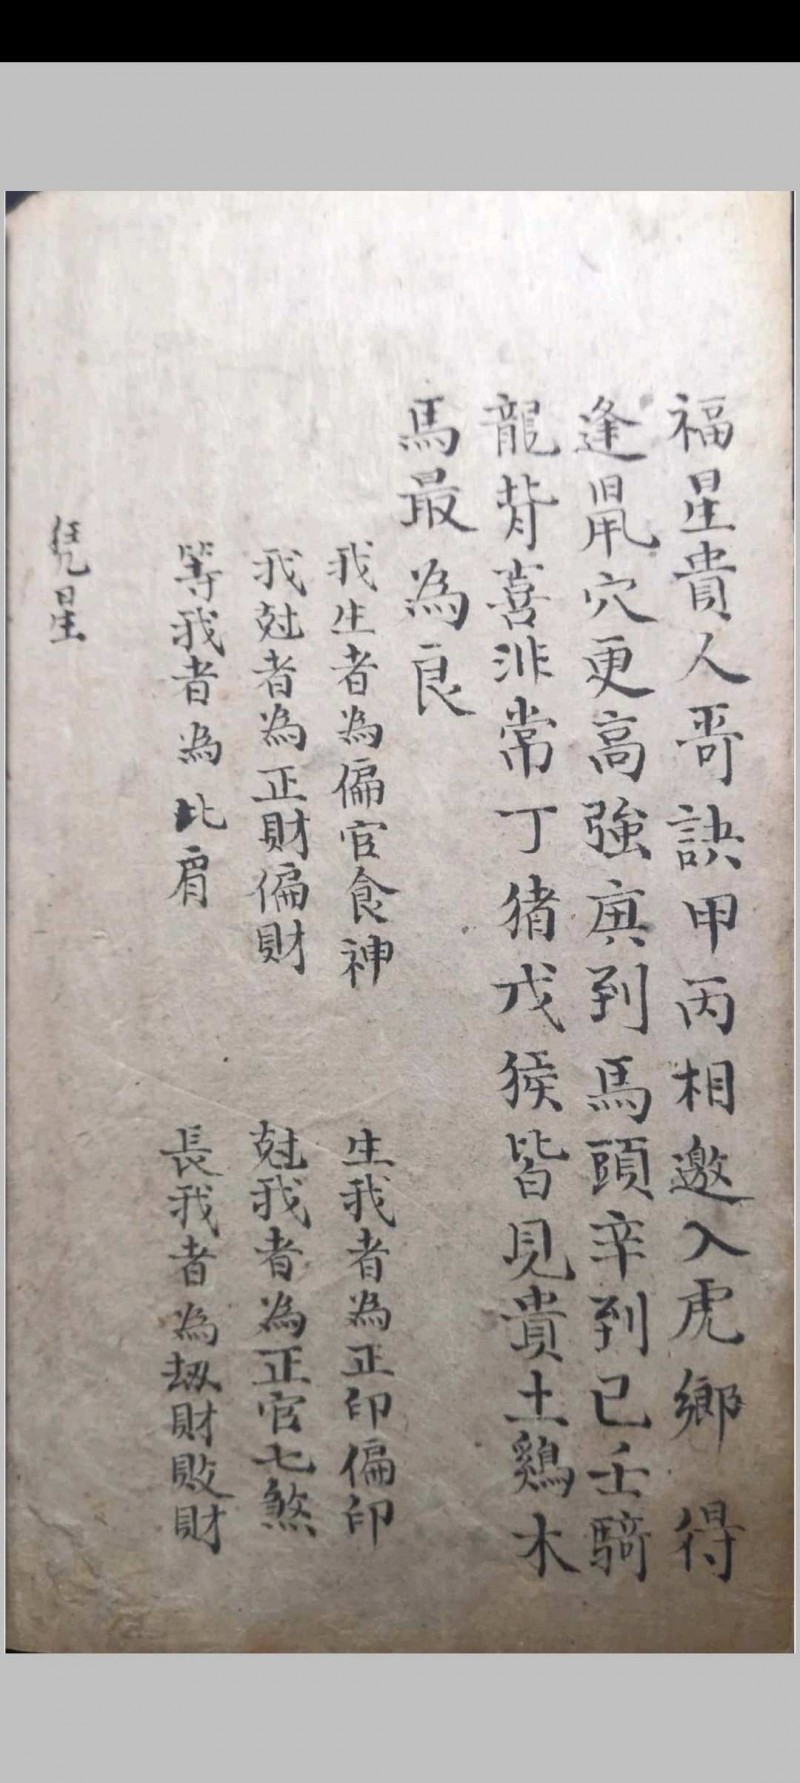 福星貴人哥訣甲丙相邀入虎鄉　得
逢鼠穴更高強庚到馬頭辛到已壬騎
龍背喜非常丁猪戊猴皆見貴土鷄木
馬最為良
我生者為偏官食神　生我者為正印偏印
我尅者為正財偏財　尅我者為正官七煞
等我者為比肩　長我者為劫財敗財
星